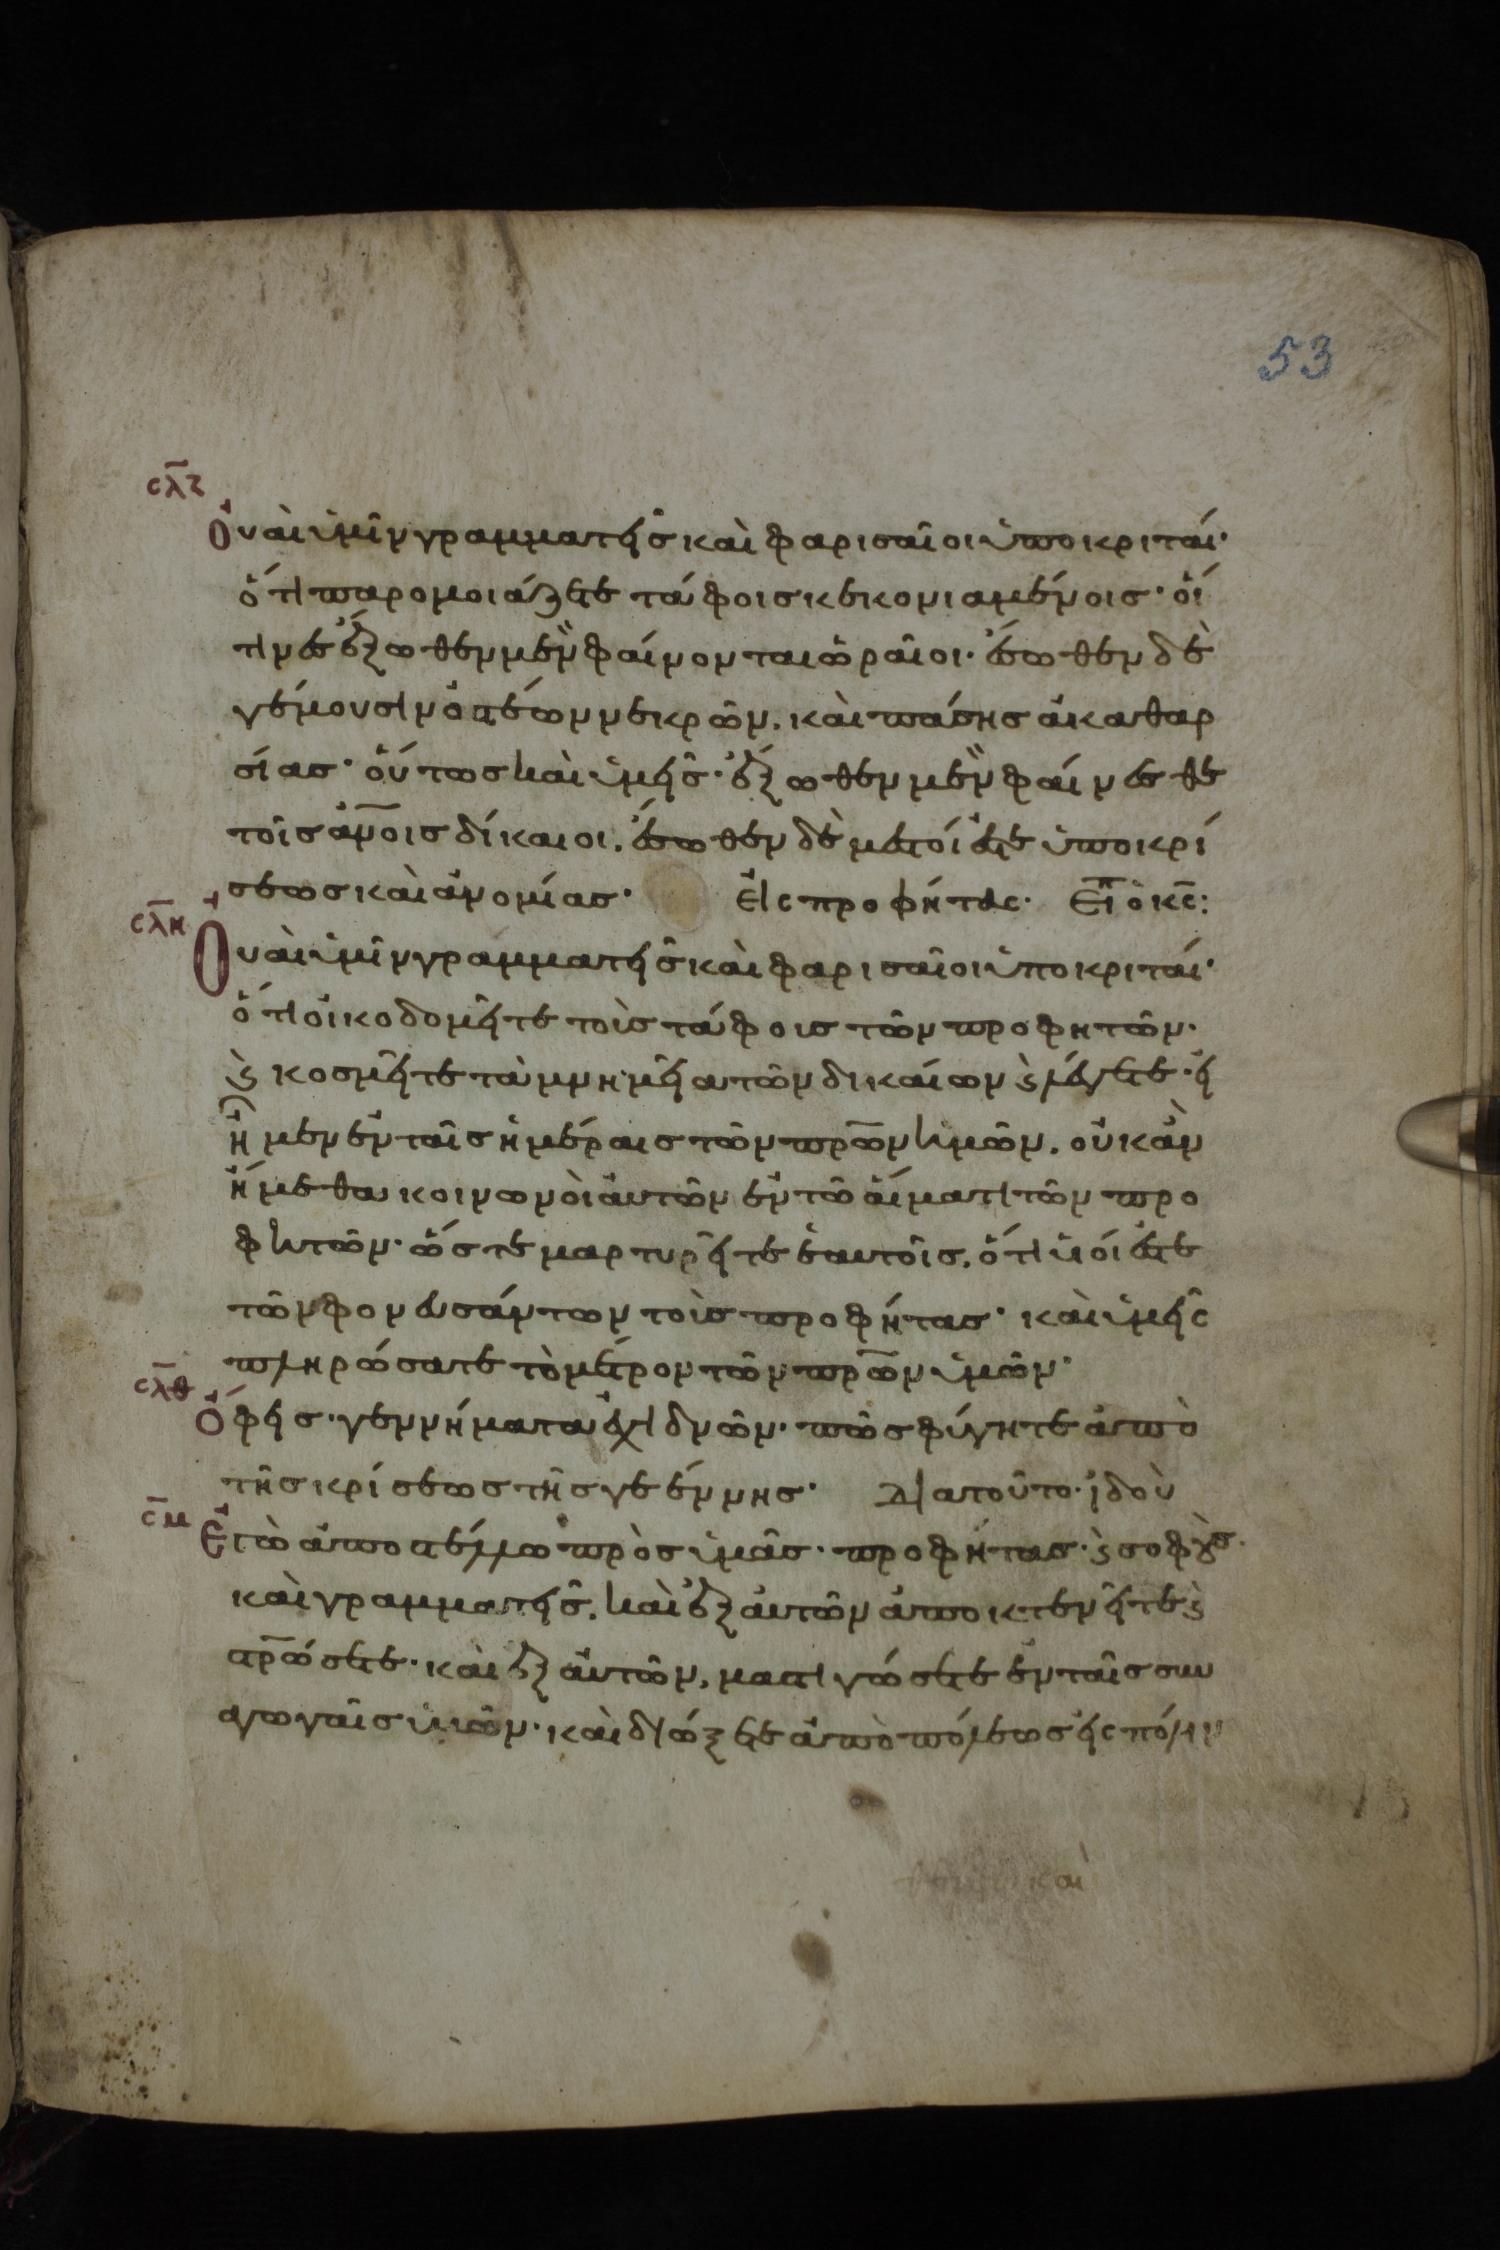 53
σλζ
Οὐαὶ ὑμῖν γραμματεῖς καὶ φαρισαῖοι ὑποκριταί·
ὅτι παρομοιάζετε τάφοις κεκονιαμένοις· οἵ
τινες ἔξωθεν μὲν φαίνονται ὡραῖοι· ἔσωθεν δὲ
γέμουσιν ὀστέων νεκρῶν, καὶ πάσης ἀκαθαρ
σίας· οὕτως καὶ ὑμεῖς· ἔξωθεν μὲν φαίνεσθε
τοῖς ἀνοις δίκαιοι, ἔσωθεν δὲ μεστοί ἐστε ὑποκρί
σεως καὶ ἀνομίας· Εἰς προφήτας· Εἶπ ὁ κς:
σλη
Οὐαὶ ὑμῖν γραμματεῖς καὶ φαρισαῖοι ὑποκριταί·
ὅτι οἰκοδομεῖτε τοὺς τάφους τῶν προφητῶν·
ϗ κοσμεῖτε τὰ μνημεῖα τῶν δικαίων ϗ λέγετε· εἰ
ἦμεν ἐν ταῖς ἡμέραις τῶν πρων ἡμῶν, οὐκ ἂν
ἤμεθα κοινωνοὶ αὐτῶν ἐν τῶ αἵματι τῶν προ
φητῶν· ὥστε μαρτυρεῖτε ἑαυτοῖς, ὅτι υἱοί ἐστε
τῶν φονευσάντων τοὺς προφήτας· καὶ ὑμεῖς
πληρώσατε τὸ μέτρον τῶν πρων ὑμῶν·
σλθ
Ὄφεις· γεννήματα ἐχιδνῶν· πῶς φύγητε ἀπὸ
τῆς κρίσεως τῆς γεέννης· Διατοῦτο· ἰδοὺ
σμ
Ἐγὼ ἀποστέλλω πρὸς ὑμᾶς· προφήτας· ϗ σοφοὺς·
καὶ γραμματεῖς, καὶ ἐξ αὐτῶν ἀποκτενεῖτε ϗ
στρώσετε· καὶ ἐξ αὐτῶν, μαστιγώσετε ἐν ταῖς συν
αγωγαῖς ὑμῶν· καὶ διώξετε ἀπὸ πόλεως εἰς πόλιν
καὶ